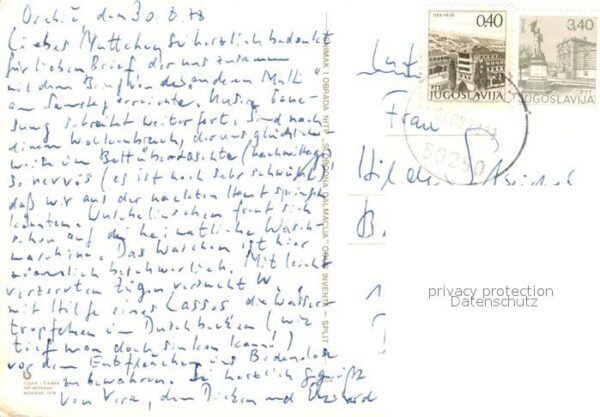 Orebić den 30.8.78
Liebes Muttchen, sei herzlich bedankt
für lieben Brief der uns zusammen
mit dem Brief von der anderen "Mutti"
am Samstag erreichte. Unsere Gene-
sung schreitet weiter fort. Sind nach
einem Wolkenbruch, der uns glücklicher
weise im Bett überraschte (nachmittags)
so nervös (es ist noch sehr schwül)
daß wir aus der nackten Haut springen
könnten. Wuschelinchen freut sich
schon auf die heimatliche Wasch-
maschine. Das Waschen ist hier
ziemlich beschwerlich. Mit leicht
verzerrten Zügen versucht W.,
mit Hilfe eines Lassos die Wasser-
tropfen im Duschbecken (wie
tief man doch sinken kann!)
vor dem Entfleuchen ins Bodenlose
zu bewahren. Sei herzlich gegrüßt
von Vera, dem Dicken und
SNIMAK I OBRADA NITP "SLOBODNA DALMACIJA" OOUR INVENTA - SPLIT
0,40
JUGOSLAVIJA
3,40
PTT
JUGOSLAVIJA
50250
Frau
privacy protection
Datenschutz